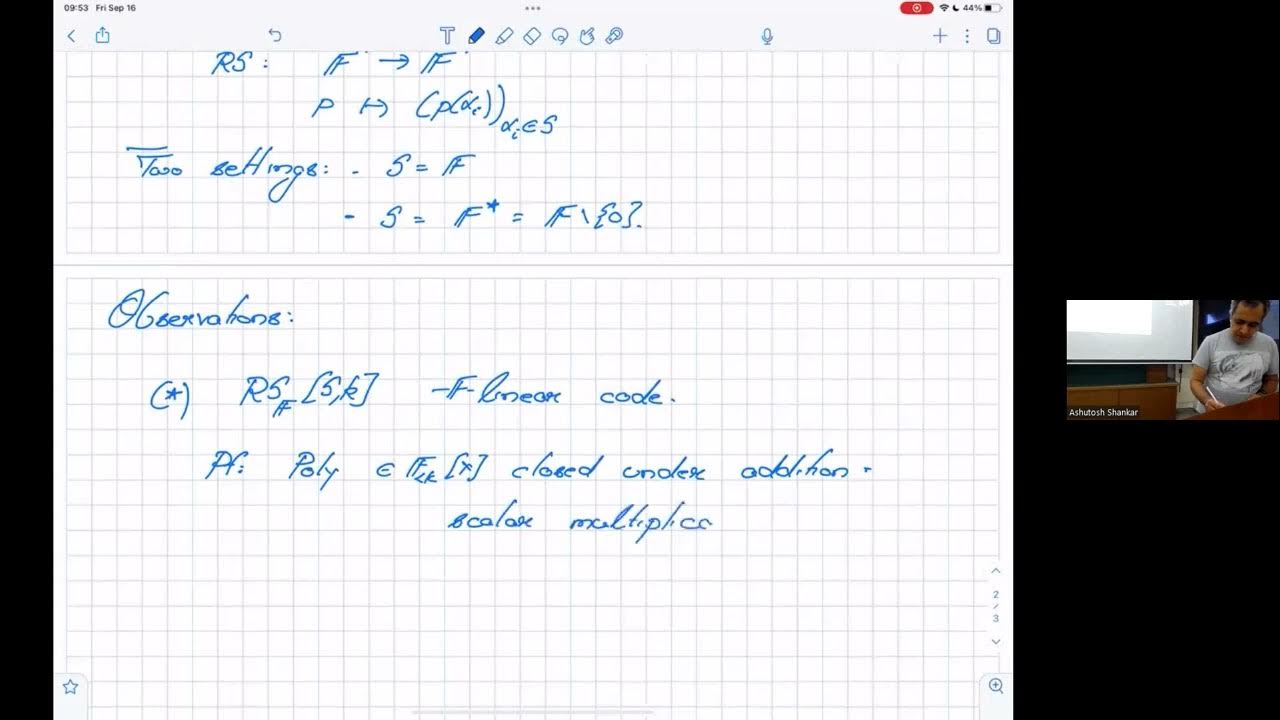 09:53 Fri Sep 16
44%
RS : 𝔽 → 𝔽
p ↦ (p(αᵢ))_{αᵢ∈S}
Two settings: - S = 𝔽
- S = 𝔽* = 𝔽\{0}.
Observations:
(*) RS_𝔽[S,k] -𝔽-linear code.
Pf: Poly ∈ 𝔽_{<k}[x] closed under addition +
scalar multiplica
2
/
3
Ashutosh Shankar